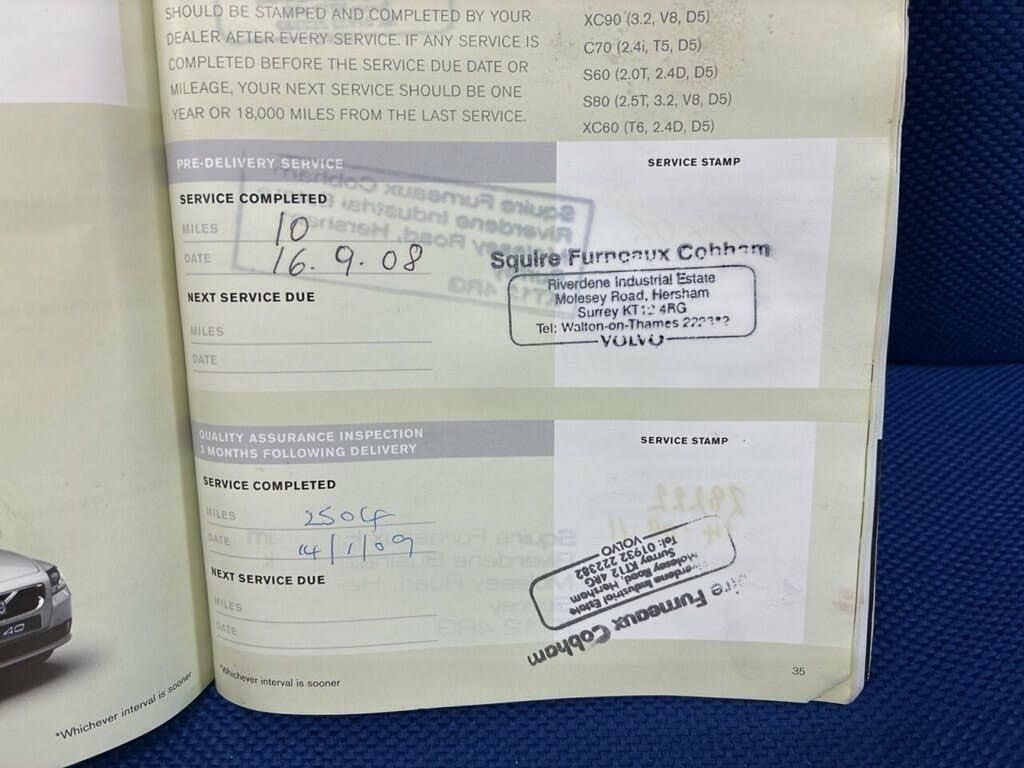 SHOULD BE STAMPED AND COMPLETED BY YOUR
DEALER AFTER EVERY SERVICE. IF ANY SERVICE IS
COMPLETED BEFORE THE SERVICE DUE DATE OR
MILEAGE, YOUR NEXT SERVICE SHOULD BE ONE
YEAR OR 18,000 MILES FROM THE LAST SERVICE.
XC90 (3.2, V8, D5)
C70 (2.4i, T5, D5)
S60 (2.0T, 2.4D, D5)
S80 (2.5T, 3.2, V8, D5)
XC60 (T6, 2.4D, D5)
PRE-DELIVERY SERVICE
SERVICE COMPLETED
MILES 10
DATE 16.9.08
NEXT SERVICE DUE
MILES
DATE
SERVICE STAMP
Squire Furneaux Cobham
Riverdene Industrial Estate
Molesey Road, Hersham
Surrey KT12 4RG
Tel: Walton-on-Thames
VOLVO
QUALITY ASSURANCE INSPECTION
3 MONTHS FOLLOWING DELIVERY
SERVICE COMPLETED
MILES 2504
DATE 14/1/09
NEXT SERVICE DUE
MILES
DATE
SERVICE STAMP
Squire Furneaux Cobham
Riverdene Industrial Estate
Molesey Road, Hersham
Surrey KT12 4RG
Tel: 01932 222382
VOLVO
*Whichever interval is sooner
35
*Whichever interval is sooner